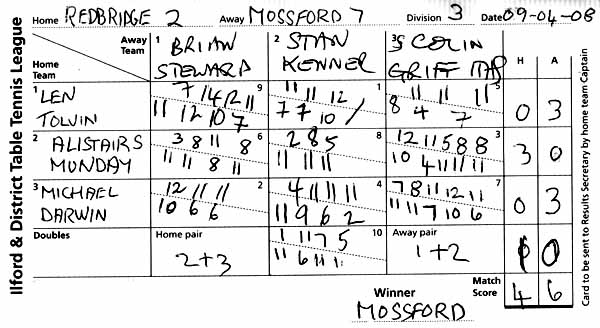 Ilford & District Table Tennis League
Home REDBRIDGE 2 Away MOSSFORD 7 Division 3 Date 09-04-08
Away Team
Home Team
1 BRIAN STEWARD
2 STAN KENNER
3 COLIN
H A
1 LEN TOLVIN
9
7 14 12 11
11 12 10 7
1
11 11 12
7 7 10
5
11 11 11
8 4 7
0 3
2 ALISTAIRS MUNDAY
6
3 8 11 8
11 11 8 11
8
2 8 5
11 11 11
3
12 11 5 8 8
10 4 11 11 11
3 0
3 MICHAEL DARWIN
2
12 11 11
10 6 6
4
4 11 11 11
11 9 6 2
7
7 8 11 12 11
11 11 7 10 6
0 3
Doubles
Home pair
2+3
10
1 11 7 5
11 6 11 11
Away pair
1+2
0
Winner MOSSFORD
Match Score
4 6
Card to be sent to Results Secretary by home team Captain